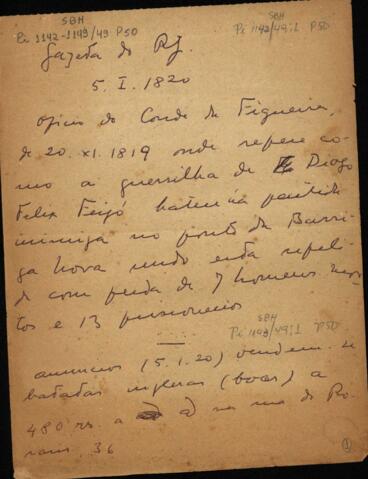 SBH
Pi 1142-1149/49 P50
SBH
Pi 1142/49;1 P50
Gazeta do RJ.
5. I. 1820
Oficio do Conde da Figueira,
de 20. XI. 1819 onde refere co-
mo a guerrilha de Diogo
Felix Feijó bateu a partida
inimiga no ponto da Barri-
ga Nova sendo esta repeli-
da com perda de 7 homens mor-
tos e 13 prisioneiros
SBH
Pi 1142/49;1 P50
anuncios (5.1.20) vendem-se
batatas inglesas (boas) a
480 rs. a @ na rua do Ro-
sario, 36
1